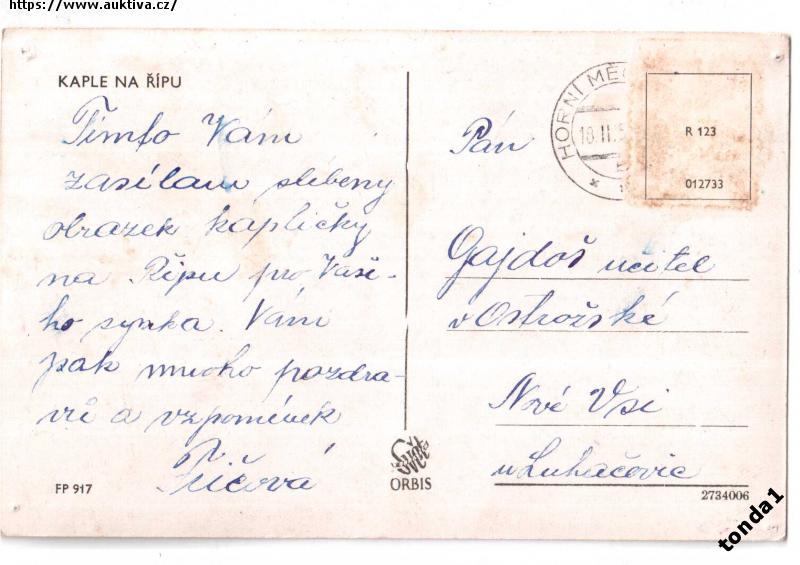 https://www.auktiva.cz/
KAPLE NA ŘÍPU
Tímto Vám
zasílam slibeny
obrazek kapličky
na Řípu pro Vaše-
ho synka. Vám
pak mnoho pozdra-
vů a vzpomínek
FP 917
ORBIS
HORNÍ
18.II.
R 123
012733
Pán
Gajdoš učitel
v Ostrožské
Nové Vsi
u Luhačovic
2734006
tonda1